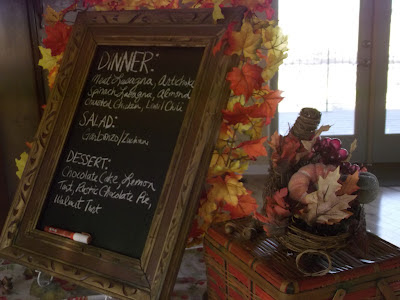 DINNER:
Meat Lasagna, Artichoke
Spinach Lasagna, Almond
Crusted Chicken, Lentil Chili
SALAD:
Garbanzo/Zucchini
DESSERT:
Chocolate Cake, Lemon
Tart, Rustic Chocolate Pie,
Walnut Tart